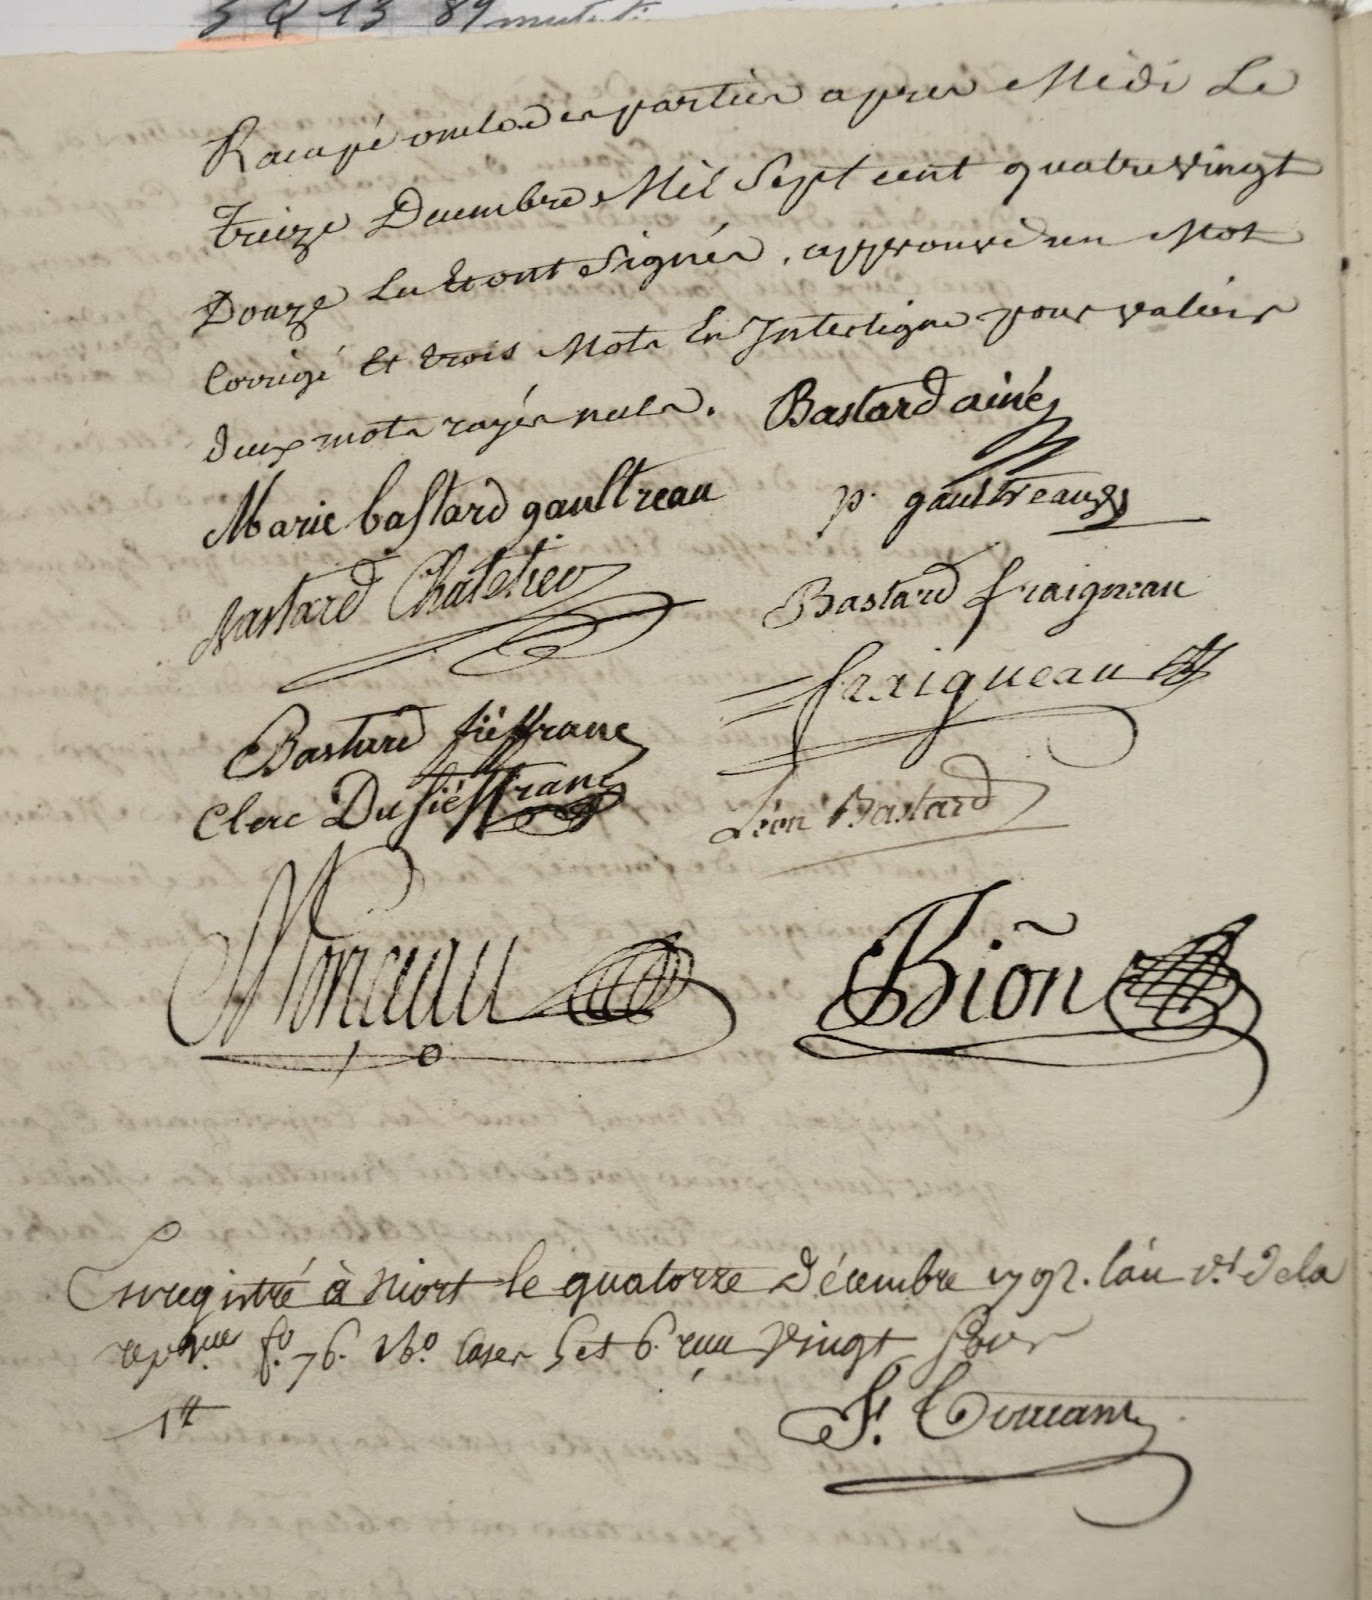 3 Q 13 89
treize Decembre Mil Sept cent quatre vingt
Douze Lu et ont Signés, approuvé un Mot
Corrigé et trois Mots En Interligne pour valoir
deux mots rayés nuls. Bastard ainé
Marie bastard gaultreau p. gaultreau
Bastard Chatelier Bastard fraigneau
Bastard fiéffranc fraigneau
Clerc Dufiéffranc Léon Bastard
Moreau Bion
Enregistré à Niort le quatorze décembre 1792. l'an 1er de la
repque fo. 76. Vo. Cases 5 et 6. reçu Vingt Sous